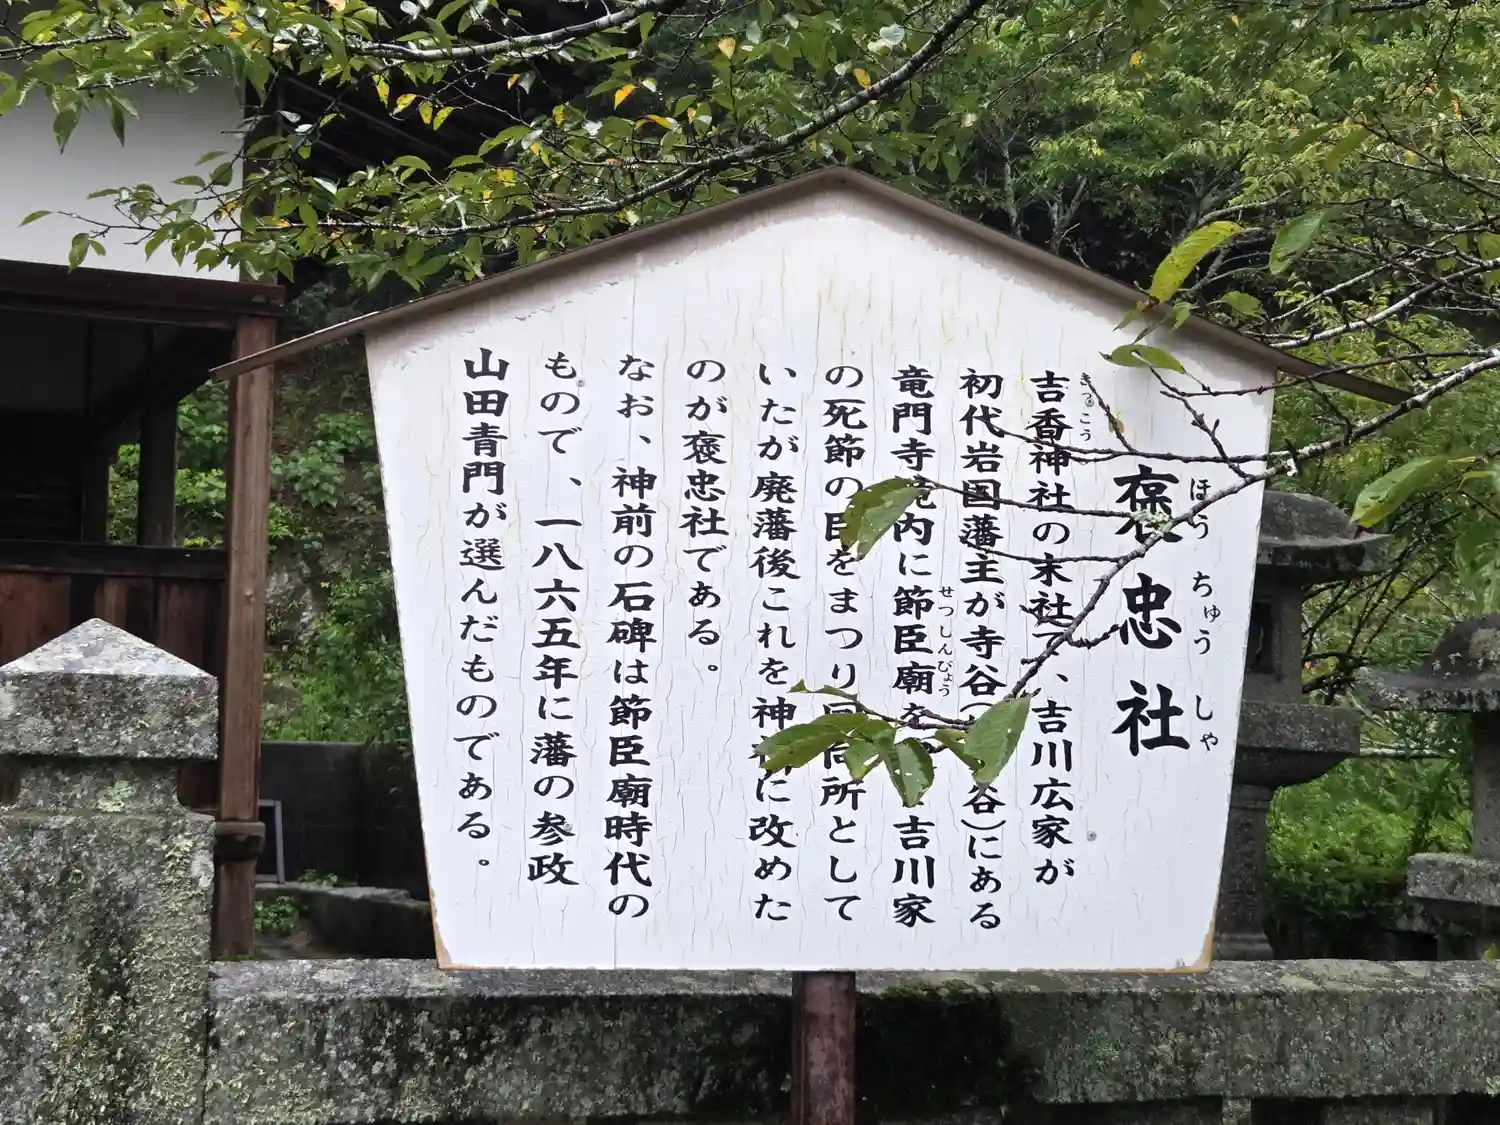 褒忠社
ほうちゅうしゃ
きっこう
吉香神社の末社で、吉川広家が
初代岩国藩主が寺谷(谷)にある
せつしんびょう
竜門寺境内に節臣廟を吉川家
の死節の臣をまつり同所として
いたが廃藩後これを神に改めた
のが褒忠社である。
なお、神前の石碑は節臣廟時代の
もので、一八六五年に藩の参政
山田青門が選んだものである。